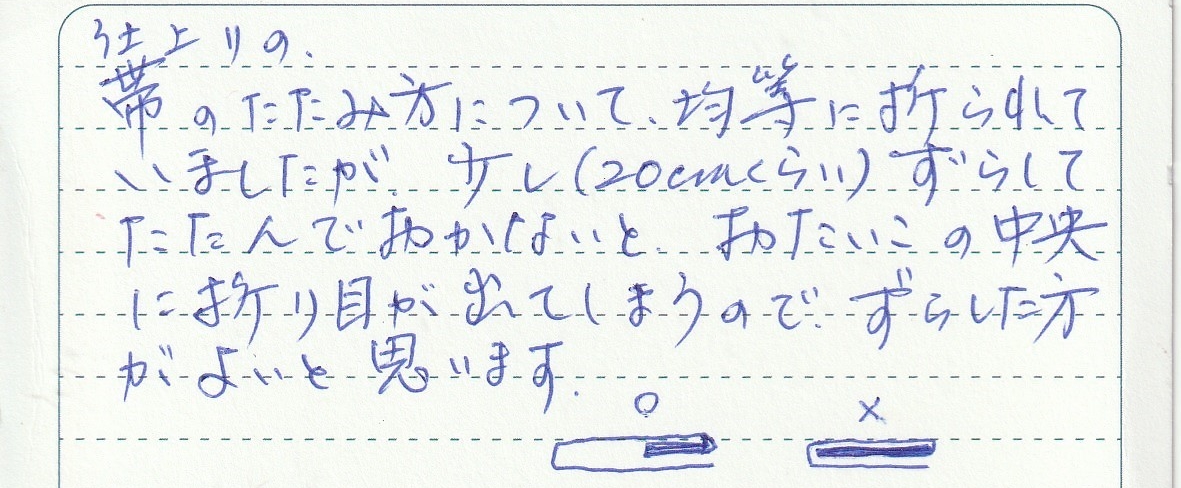 仕上りの、
帯のたたみ方について、均等に折られて
いましたが、少し(20cmくらい)ずらして
たたんでおかないと、おたいこの中央
に折り目が出てしまうので、ずらした方
がよいと思います。
○ ×